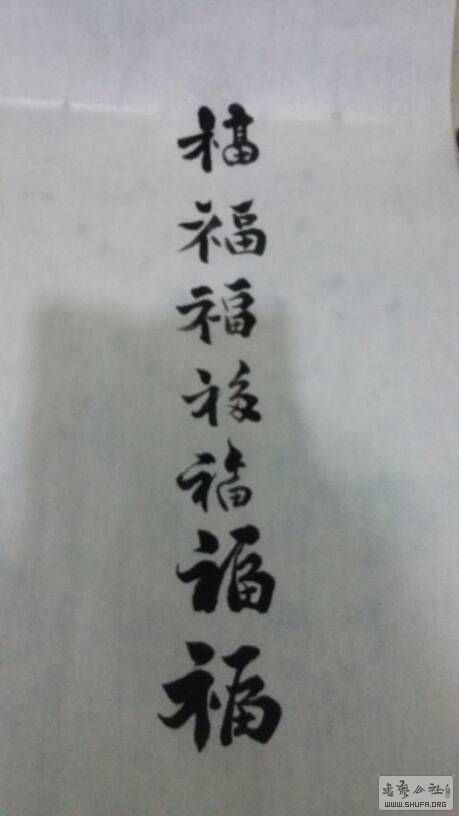 福
福
福
福
福
福
福
WWW.SHUFA.ORG